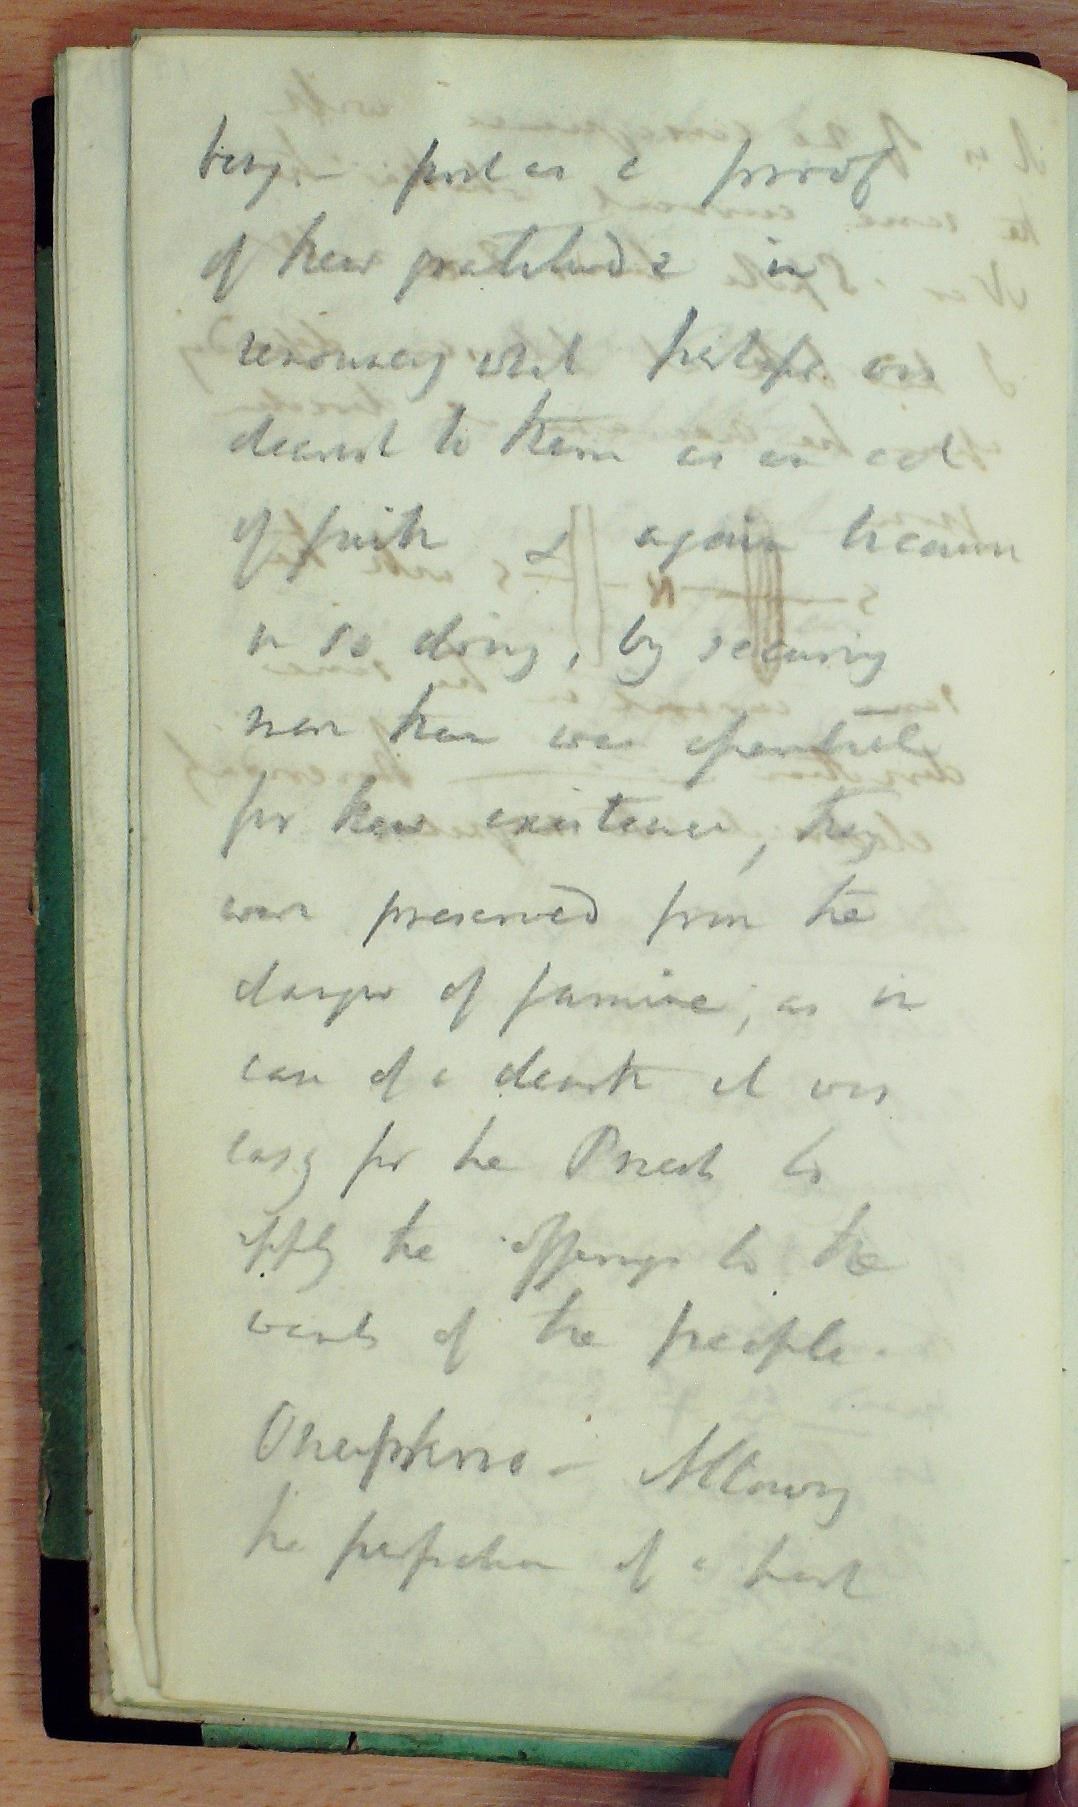 being. - first as a proof
of their gratitude in
renouncing what perhaps was
dearest to them as an act
of faith & again because
in so doing, by securing
more than was essential
for their existence, they
were preserved from the
danger of famine, as in
case of a dearth it was
easy for the Priest to
apply the offerings to the
wants of the people.
Onesiphorus - Allowing
the perfection of a